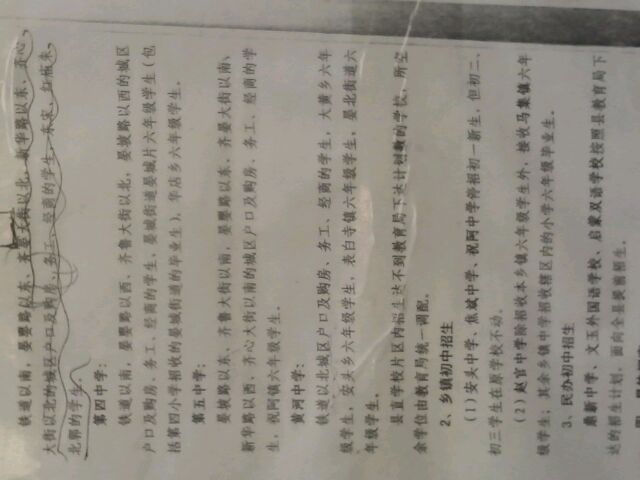 铁道以南，晏婴路以东、齐晏大街以北，新华路以东、齐心
大街以北的城区户口及购房、务工、经商的学生，东宋、
北郭的学生。
第四中学：
铁道以南，晏婴路以西、齐鲁大街以北，晏坡路以西的城区
户口及购房、务工、经商的学生，晏城街道晏城片六年级学生（包
括第四小学招收的晏城街道的毕业生），华店乡六年级学生。
第五中学：
晏坡路以东、齐鲁大街以南，晏婴路以东、齐晏大街以南、
新华路以西、齐心大街以南的城区户口及购房、务工、经商的学
生，祝阿镇六年级学生。
黄河中学：
铁道以北城区户口及购房、务工、经商的学生，大黄乡六年
级学生，安头乡六年级学生，表白寺镇六年级学生，晏北街道六
年级学生。
县直学校片区内招生达不到教育局下达计划数的学校，所空
余学位由教育局统一调配。
2、乡镇初中招生
（1）安头中学、焦斌中学、祝阿中学停招初一新生，但初二、
初三学生在原学校不动。
（2）赵官中学除招收本乡镇六年级学生外，接收马集镇六年
级学生；其余乡镇中学招收辖区内的小学六年级毕业生。
3、民办初中招生
鼎新中学、文玉外国语学校、启蒙双语学校按照县教育局下
达的招生计划，面向全县提前招生。